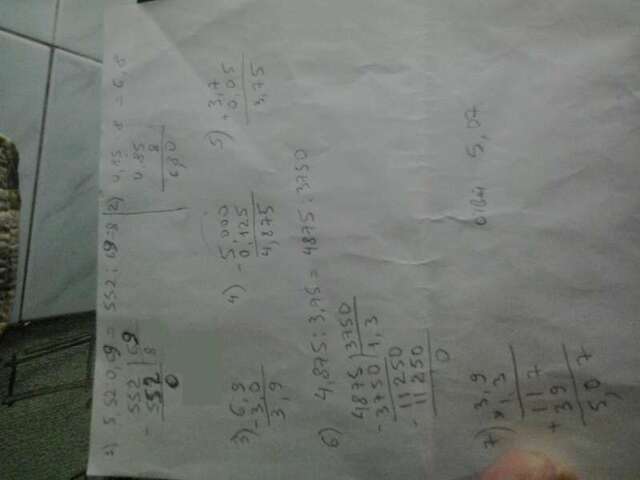 1) 5,52:0,69 = 552:69=8
552 | 69
- 552 | 8
0
2) 0,85 8 = 6,8
0,85
8
680
3) 6,9
- 3,0
3,9
4) 5,000
- 0,125
4,875
5) 3,7
+ 0,05
3,75
6) 4,875:3,75 = 4875:3750
4875 | 3750
- 3750 | 1,3
11250
- 11250
0
7) 3,9
× 1,3
117
+ 39
5,07
5,07